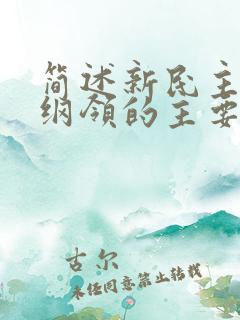 简述新民主
纲领的主要
古尔
未经同意禁止转载